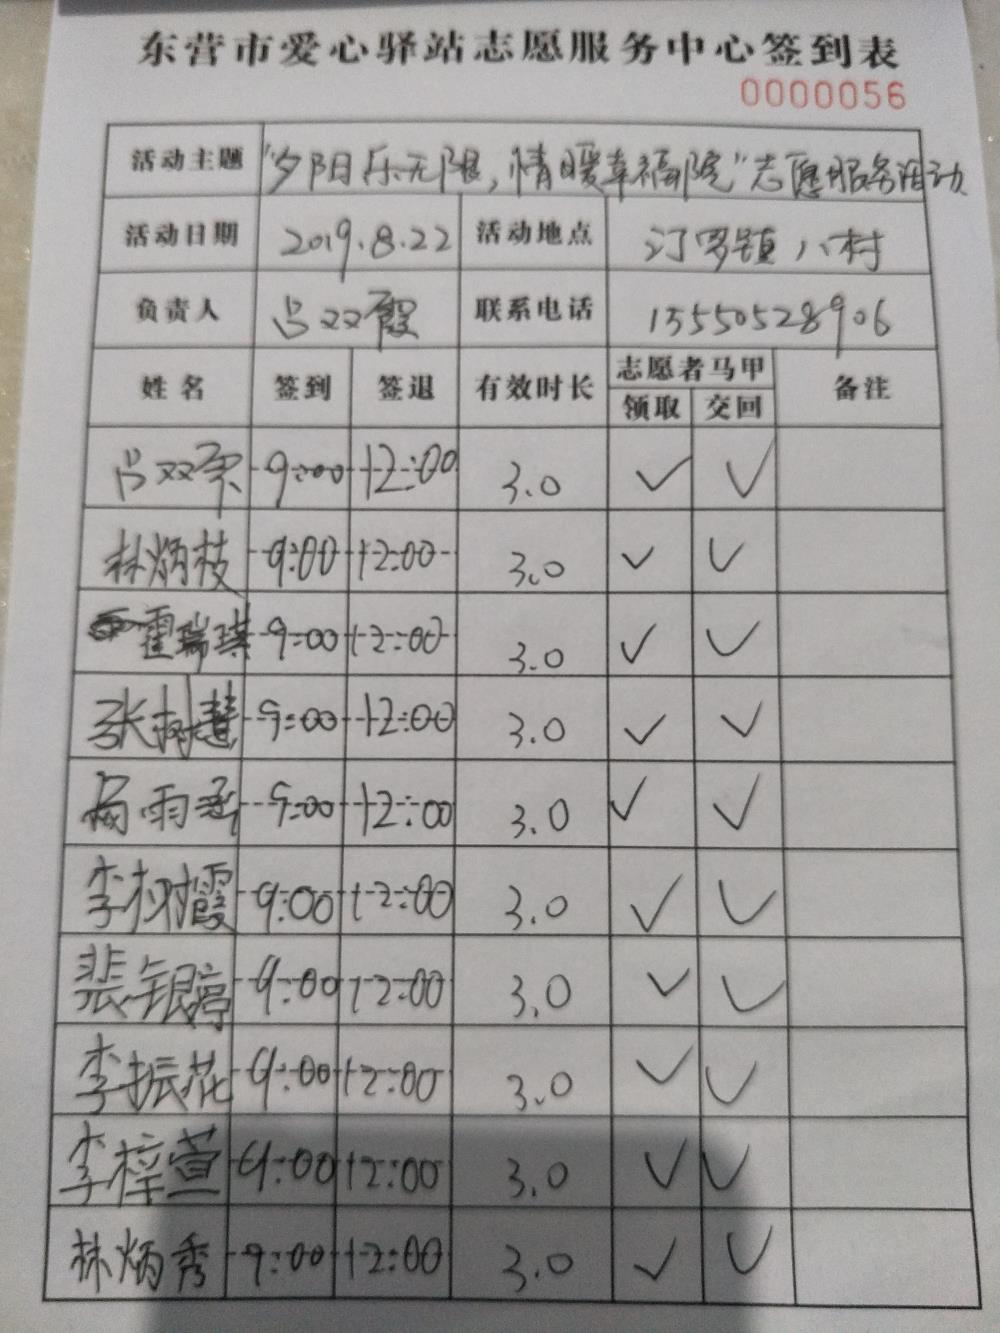 东营市爱心驿站志愿服务中心签到表
0000056
活动主题 "夕阳乐无限，情暖幸福院"志愿服务活动
活动日期 2019.8.22 活动地点 汀罗镇八村
负责人 吕双霞 联系电话 15550528906
姓名 签到 签退 有效时长 志愿者马甲 备注
领取 交回
吕双 9:00 12:00 3.0 ✓ ✓
林炳枝 9:00 12:00 3.0 ✓ ✓
霍瑞琪 9:00 12:00 3.0 ✓ ✓
张树慧 9:00 12:00 3.0 ✓ ✓
杨雨涵 9:00 12:00 3.0 ✓ ✓
李树霞 9:00 12:00 3.0 ✓ ✓
裴银 9:00 12:00 3.0 ✓ ✓
李振花 9:00 12:00 3.0 ✓ ✓
李梓萱 9:00 12:00 3.0 ✓ ✓
林炳秀 9:00 12:00 3.0 ✓ ✓